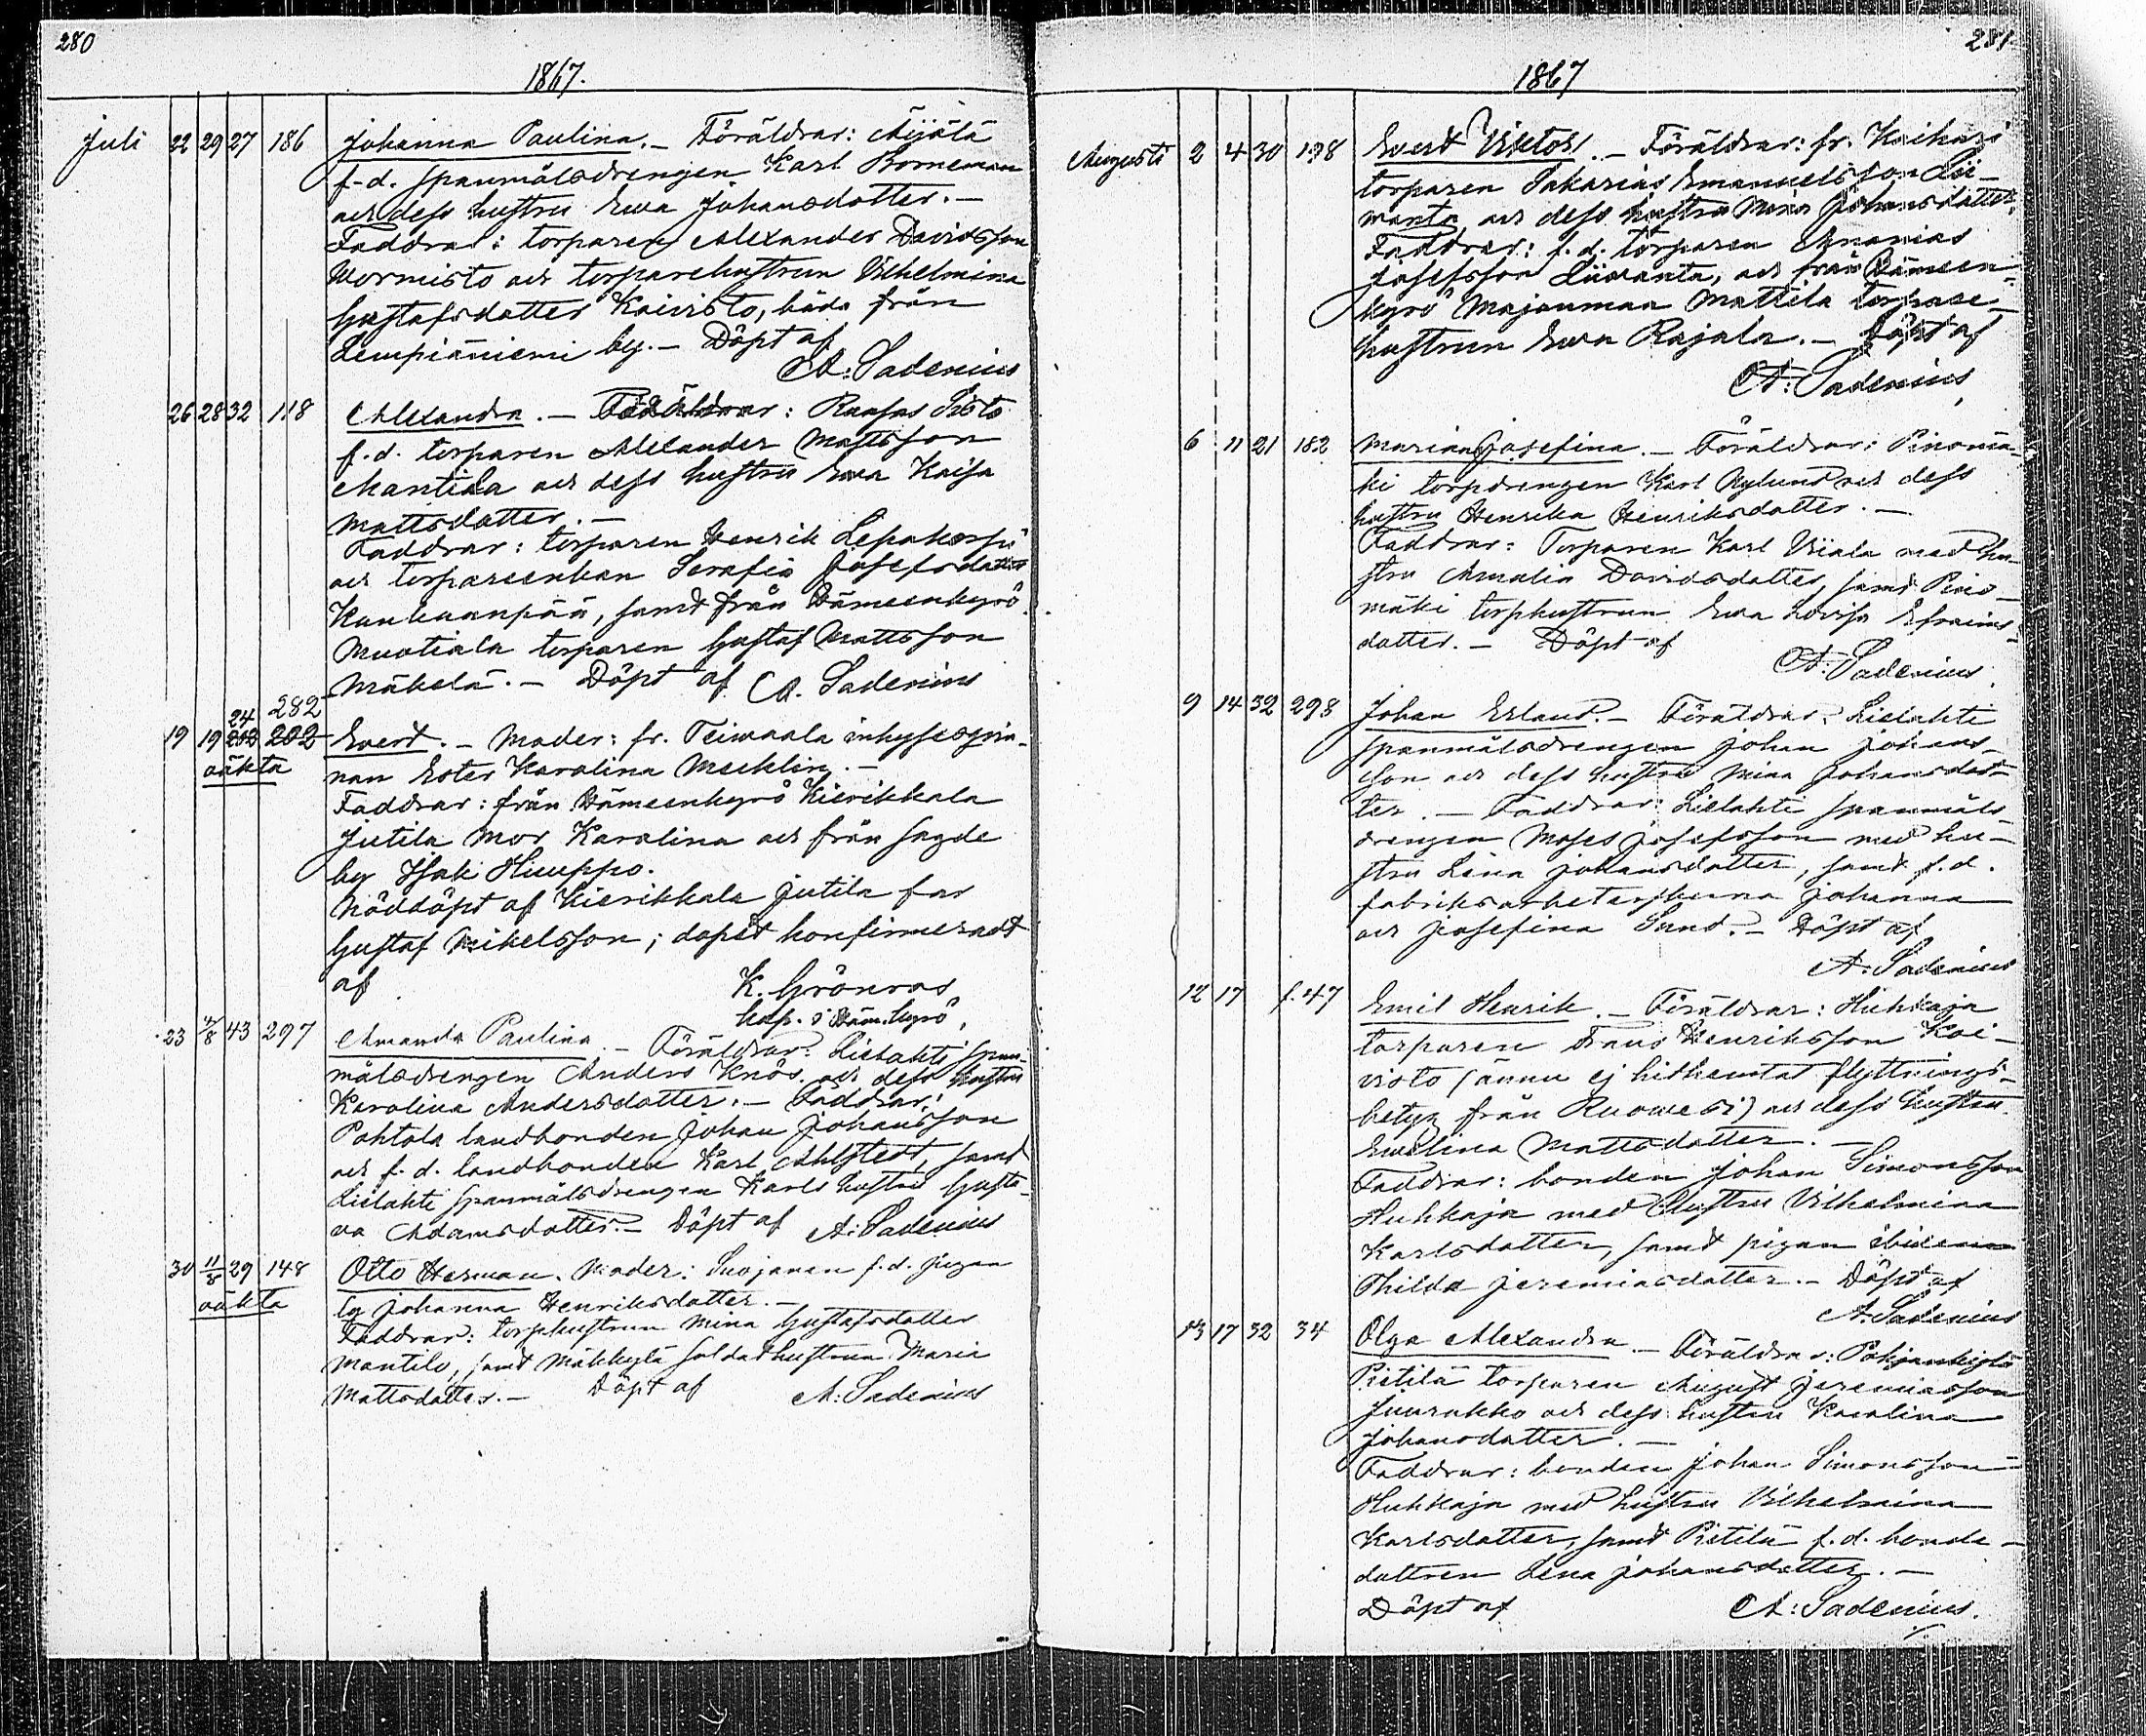 280
1867.
Juli 22 29 27 186 Johanna Paulina. – Föräldrar: Äijälä
f.d. spanmålsdrengen Karl Borneman
och dess hustru Ewa Johansdotter. –
Faddrar: torparen Alexander Davidsson
Wormisto och torparehustrun Vilhelmina
Gustafsdotter Koivisto, båda från
Lempiäniemi by. – Döpt af
A. Sadenius
26 28 32 118 Alexandra. – Föräldrar: Sisto
f.d. torparen Alexander Mattsson
Mantila och dess hustru Ewa Kaisa
Mattsdotter. –
Faddrar: torparen Henrik Lepakorpi
och torpareenkan Serafia Josefsdotter
Kankaanpää, samt från Hämeenkyrö
Muotiala torparen Gustaf Mattsson
Mäkelä. – Döpt af A. Sadenius
24 282
19 19 202 Evert. – Moder: fr. Teiwaala inhysesqvin-
oäkta nan Ester Karolina Mecklin. –
Faddrar: från Hämeenkyrö Kierikkala
Jutila mor Karolina och från sagde
by Isak Hiuppo.
Nöddöpt af Kierikkala Jutila far
Gustaf Mikelsson; dopet konfirmeradt
af K. Grönroos
kap. i Häm.kyrö,
23 4/8 43 297 Amanda Paulina. – Föräldrar: Lielahti span-
målsdrengen Anders Knös och dess hustru
Karolina Andersdotter. – Faddrar:
Pohtola landbonden Johan Johansson
och f.d. landbonden Karl Ahlstedt, samt
Lielahti spanmålsdrengen Karls hustru Gusta-
va Adamsdotter. – Döpt af A. Sadenius
30 11/8 29 148 Otto Herman. Moder: Suojanen f.d. pigan
oäkta Johanna Henriksdotter. –
Faddrar: torphustrun Mina Gustafsdotter
Mantila, samt Mäkkylä soldathustrun Maria
Mattsdotter. – Döpt af A. Sadenius
281
1867
Augusti 2 4 30 198 Evert Viktor. – Föräldrar: fr. Kaihari
torparen Sakarias Emanuelsson Lii-
wanta och dess hustru Mina Johansdotter.
Faddrar: f.d. torparen Ananias
Josefsson Liiwanta, och från Hämeen-
kyrö Majanmaa Mattila torpare-
hustrun Ewa Rajala. – Döpt af
A. Sadenius,
6 11 21 182 Maria Josefina. – Föräldrar: Pinomä-
ki torpdrengen Karl Nylund och dess
hustru Henrika Henriksdotter. –
Faddrar: Torparen Karl Wiiala med hu-
stru Amalia Davidsdotter, samt Pino-
mäki torphustrun Ewa Lovisa Efraims-
dotter. – Döpt af
A. Sadenius
9 14 32 298 Johan Erland. – Föräldrar: Lielahti
spanmålsdrengen Johan Johans-
son och dess hustru Mina Johansdot-
ter. – Faddrar: Lielahti spanmåls-
drengen Moses Josefsson med hu-
stru Lina Johansdotter, samt f.d.
fabriksarbeterskorna Johanna
och Josefina Sund. – Döpt af
A. Sadenius
12 17 f. 47 Emil Henrik. – Föräldrar: Huhkaja
torparen Frans Henriksson Koi-
visto (ännu ej hithemtat flyttnings-
betyg från Ruowesi) och dess hustru
Ewelina Mattsdotter. –
Faddrar: bonden Johan Simonsson
Huhkaja med hustru Vilhelmina
Karlsdotter, samt pigan ibidem
Thilda Jeremiasdotter. – Döpt af
A. Sadenius
13 17 32 34 Olga Alexandra. – Föräldrar: Pohjankylä
Pietilä torparen August Jeremiasson
Juurakko och dess hustru Karolina
Johansdotter. –
Faddrar: bonden Johan Simonsson
Huhkaja med hustru Vilhelmina
Karlsdotter, samt Pietilä f.d. bonde-
dottren Lena Johansdotter. –
Döpt af A. Sadenius.